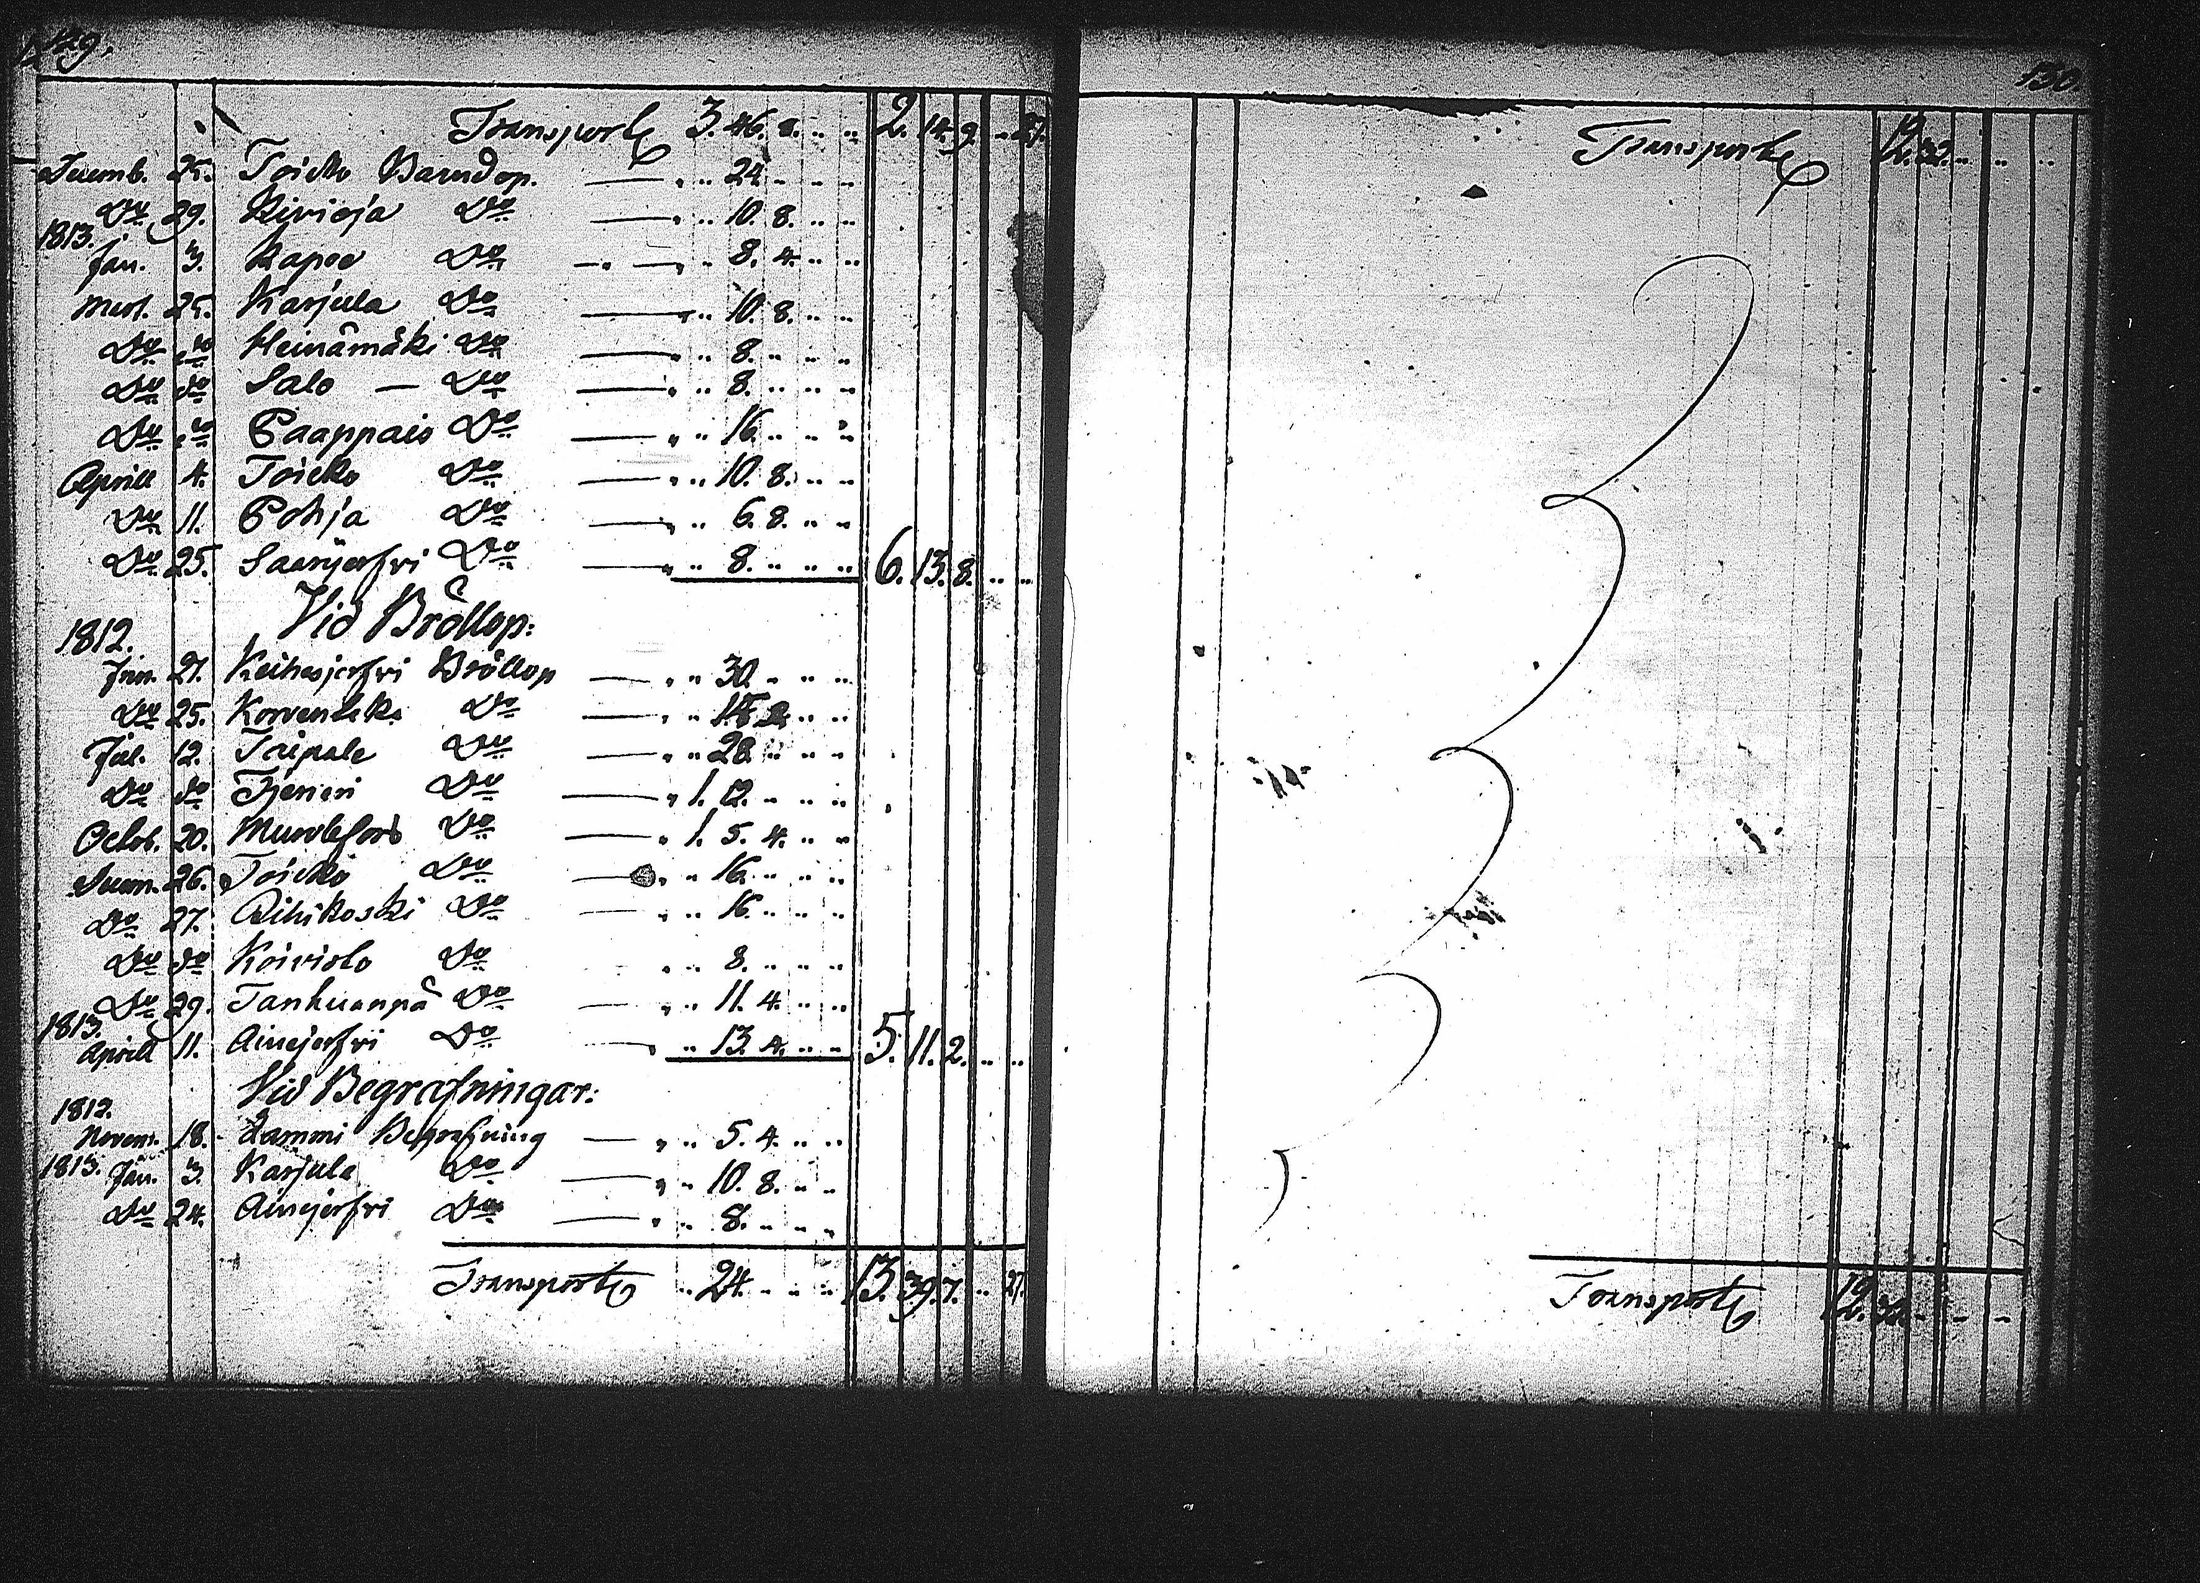 129.
Transport 3. 46. 8. .. .. 2. 14. 9. .. 27.
Decemb. 25. Toicko Barndop. — " .. 24. .. .. ..
Do 29. Kivioja Do — " .. 10. 8. .. ..
1813.
Jan. 3. Kapee Do — " .. 8. 4. .. ..
Mart. 25. Karjula Do — " .. 10. 8. .. ..
Do do Heinämäki Do — " .. 8. .. .. ..
Do do Salo — Do — " .. 8. .. .. ..
Do do Paappais Do — " .. 16. .. .. ..
Aprill 4. Toicko Do — " .. 10. 8. .. ..
Do 11. Pohja Do — " .. 6. 8. .. ..
Do 25. Do — " .. 8. .. .. .. 6. 13. 8. .. ..
Vid Bröllop:
1812.
Jun. 21. Keihesjerfvi Bröllop — " .. 30. .. .. ..
Do 25. Do — " ..
Jul. 12. Taipale Do — " .. 28. .. .. ..
Do do Do — " 1. 12. .. .. ..
Octob. 20. Do — " 1. 5. 4. .. ..
Decem. 26. Toicko Do — " .. 16. .. .. ..
Do 27. Rihikoski Do — " .. 16. .. .. ..
Do do Koivisto Do " .. 8. .. .. ..
Do 29. Tanhuanpä Do — " .. 11. 4. .. ..
1813.
Aprill 11. Ainejerfvi Do — " .. 13. 4. .. .. 5. 11. 2. .. ..
Vid Begrafningar:
1812.
Novem. 18. Lammi Begrafning — " .. 5. 4. .. ..
1813. Jan. 3. Karjula Do — " .. 10. 8. .. ..
Do 24. Ainejerfvi Do — " .. 8. .. .. ..
Transport .. 24. .. .. .. 13. 39. 7. .. 27.
130.
Transport 12. 32. .. .. ..
Transport 12. 32. .. .. ..